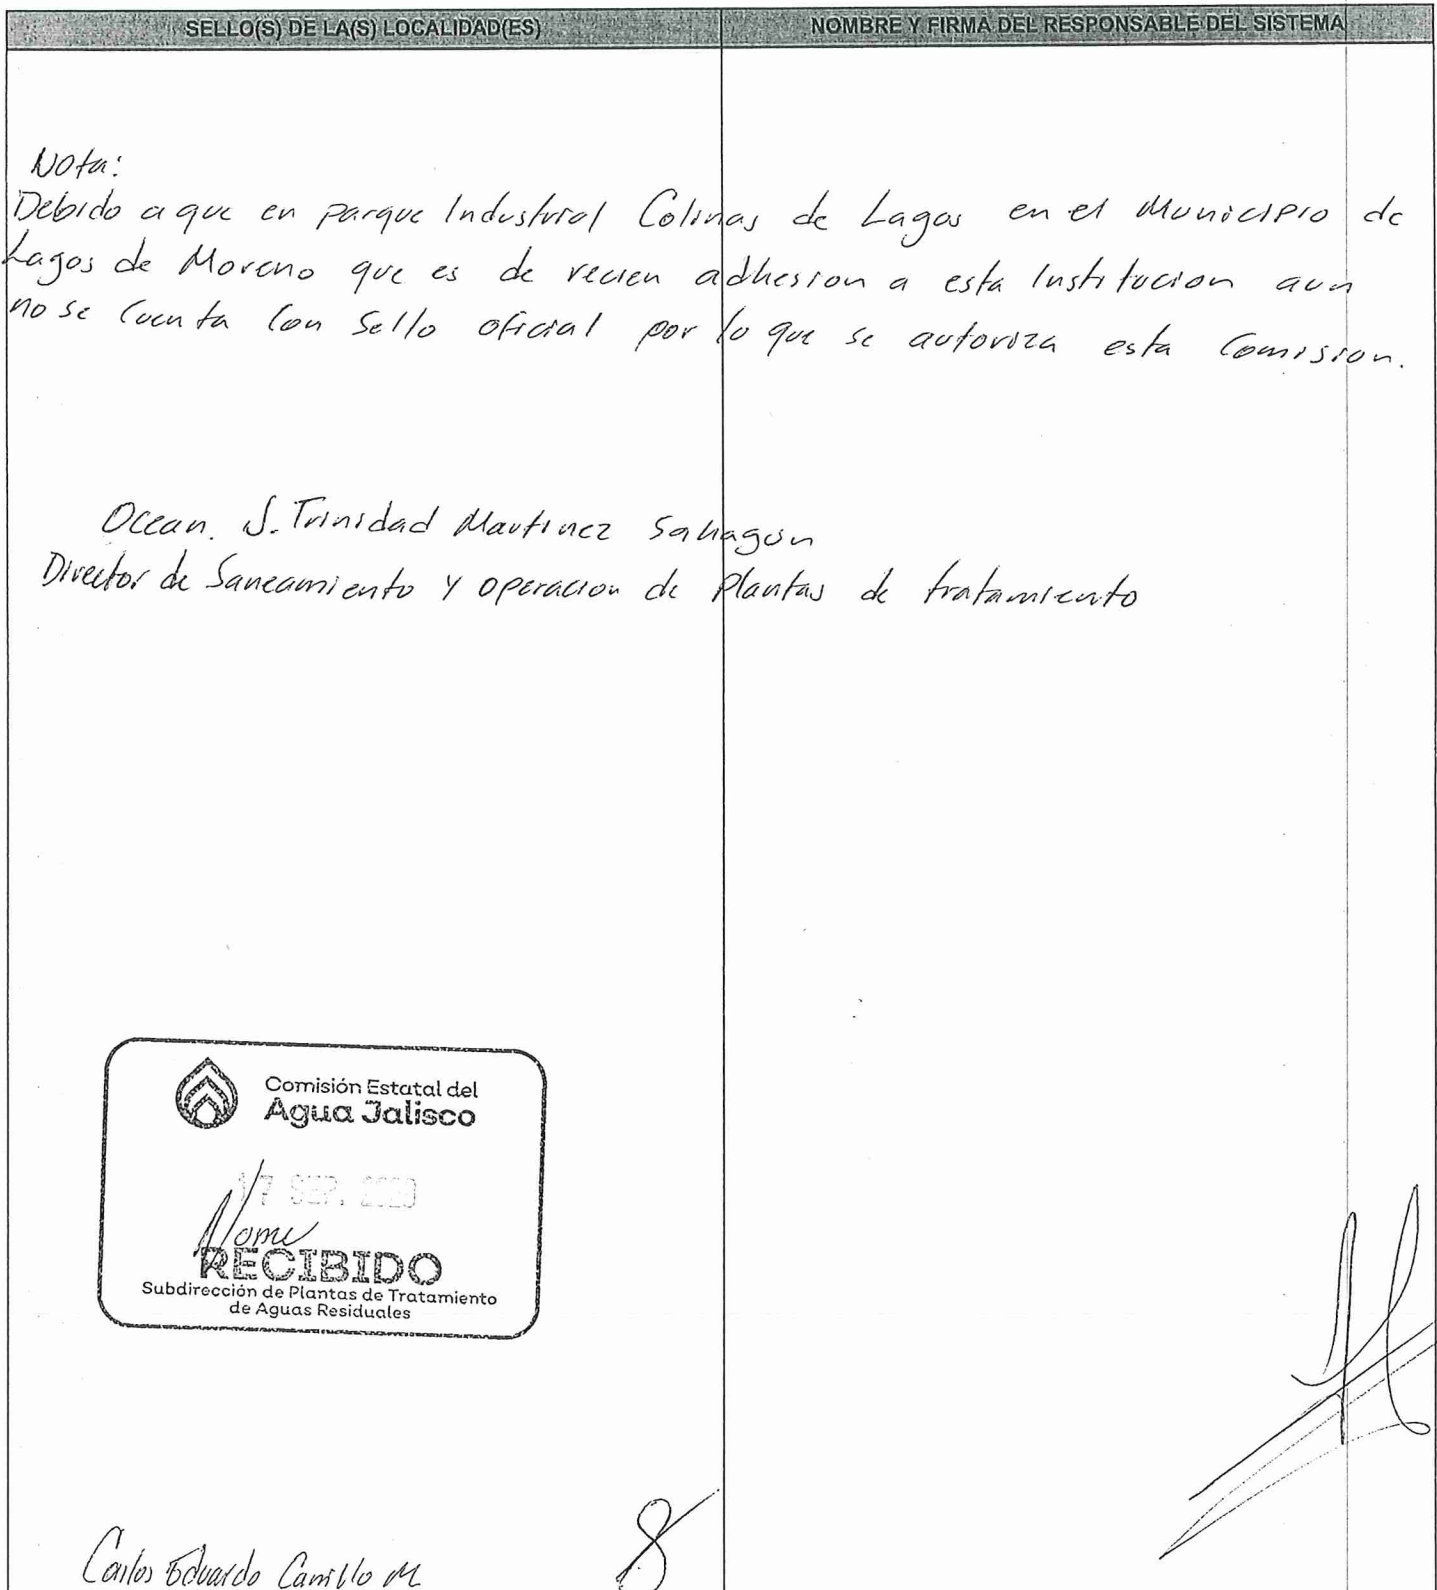 SELLO(S) DE LA(S) LOCALIDAD(ES)
NOMBRE Y FIRMA DEL RESPONSABLE DEL SISTEMA
Nota:
Debido a que en parque Industrial Colinas de Lagos en el Municipio de
Lagos de Moreno que es de recien adhesion a esta Institucion aun
no se Cuenta Con Sello oficial por lo que se autoriza esta Comision.
Ocean. J. Trinidad Martinez Sahagun
Director de Saneamiento y operacion de Plantas de tratamiento
Comisión Estatal del
Agua Jalisco
17 SEP. 2020
RECIBIDO
Subdirección de Plantas de Tratamiento
de Aguas Residuales
Carlos Eduardo Carrillo M